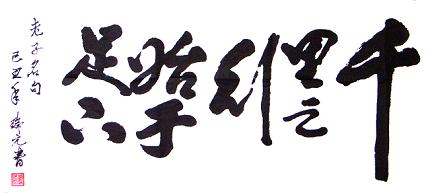 千
里之
行
始于
足下
老子名句
己丑年 書